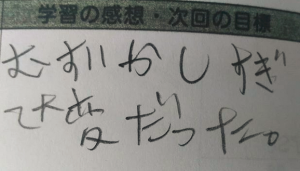 学習の感想・次回の目標
むずかしすぎ
て大変だった。